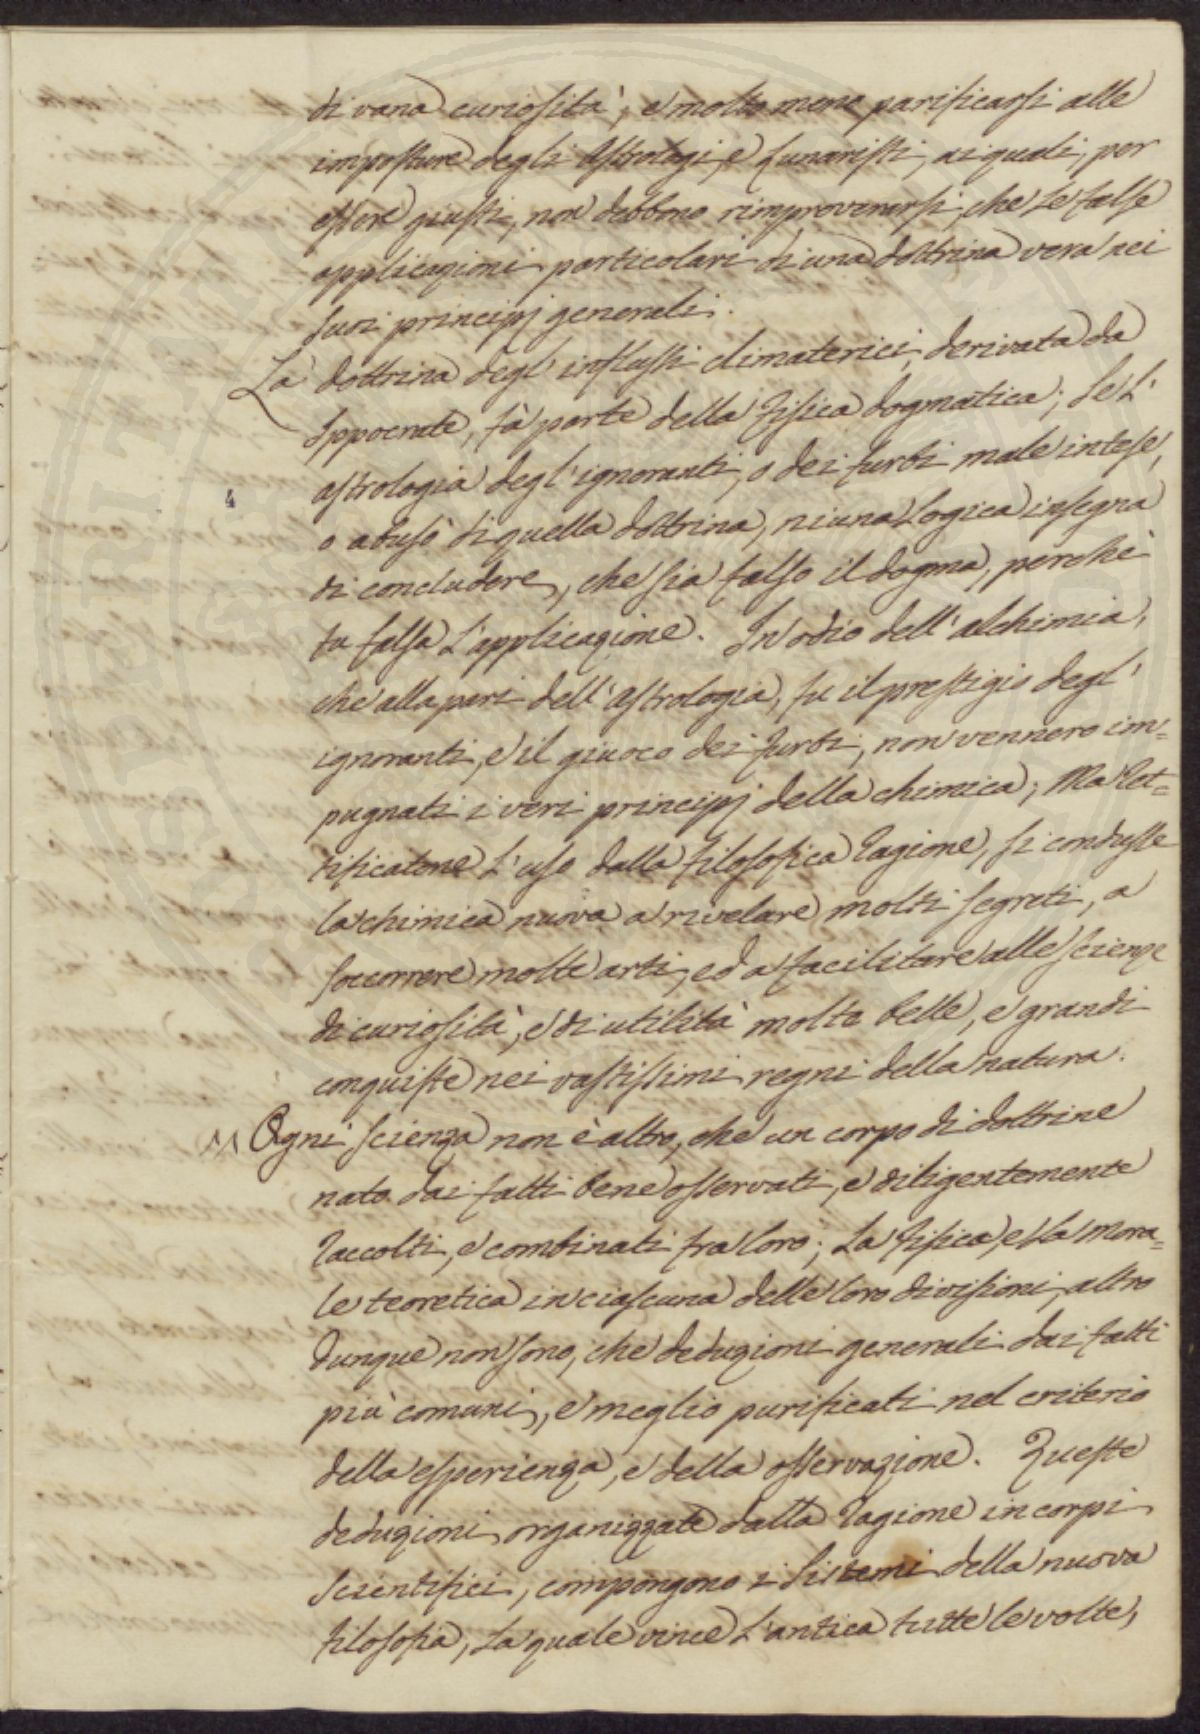 di vana curiosità, e molto meno parificarsi alle
imposture degli Astrologi, e Lunaristi, ai quali, per
essere giusti, non debbono rimproverarsi, che le false
applicazioni particolari di una dottrina vera nei
suoi principj generali.
La dottrina degl' influssi climaterici, derivata da
Ippocrate, fà parte della Fisica dogmatica; se l'
astrologia degl' ignoranti, o dei furbi male intese,
4
o abusò di quella dottrina, niuna Logica insegna
di concludere, che sia falso il dogma, perchè
fu falsa l'applicazione. In odio dell' alchimia,
che alla pari dell' astrologia, fu il prestigio degl'
ignoranti, e il giuoco dei furbi, non vennero im=
pugnati i veri principj della chimica; Ma Ret=
tificatone l'uso dalla filosofica Ragione, si condusse
la chimica nuova a rivelare molti segreti, a
soccorrere molte arti, ed a facilitare alle scienze
di curiosità, e di utilità molte belle, e grandi
conquiste nei vastissimi regni della natura.
Ogni scienza non è altro, che un corpo di dottrine
nato dai fatti bene osservati, e diligentemente
Raccolti, e combinati fra loro; La Fisica, e la Mora=
le teoretica in ciascuna delle loro divisioni, altro
dunque non sono, che deduzioni generali dai fatti
più comuni, e meglio purificati nel criterio
della esperienza, e della osservazione. Queste
deduzioni organizzate dalla Ragione in corpi
scientifici, compongono i sistemi della nuova
filosofia, la quale vince l'antica tutte le volte,